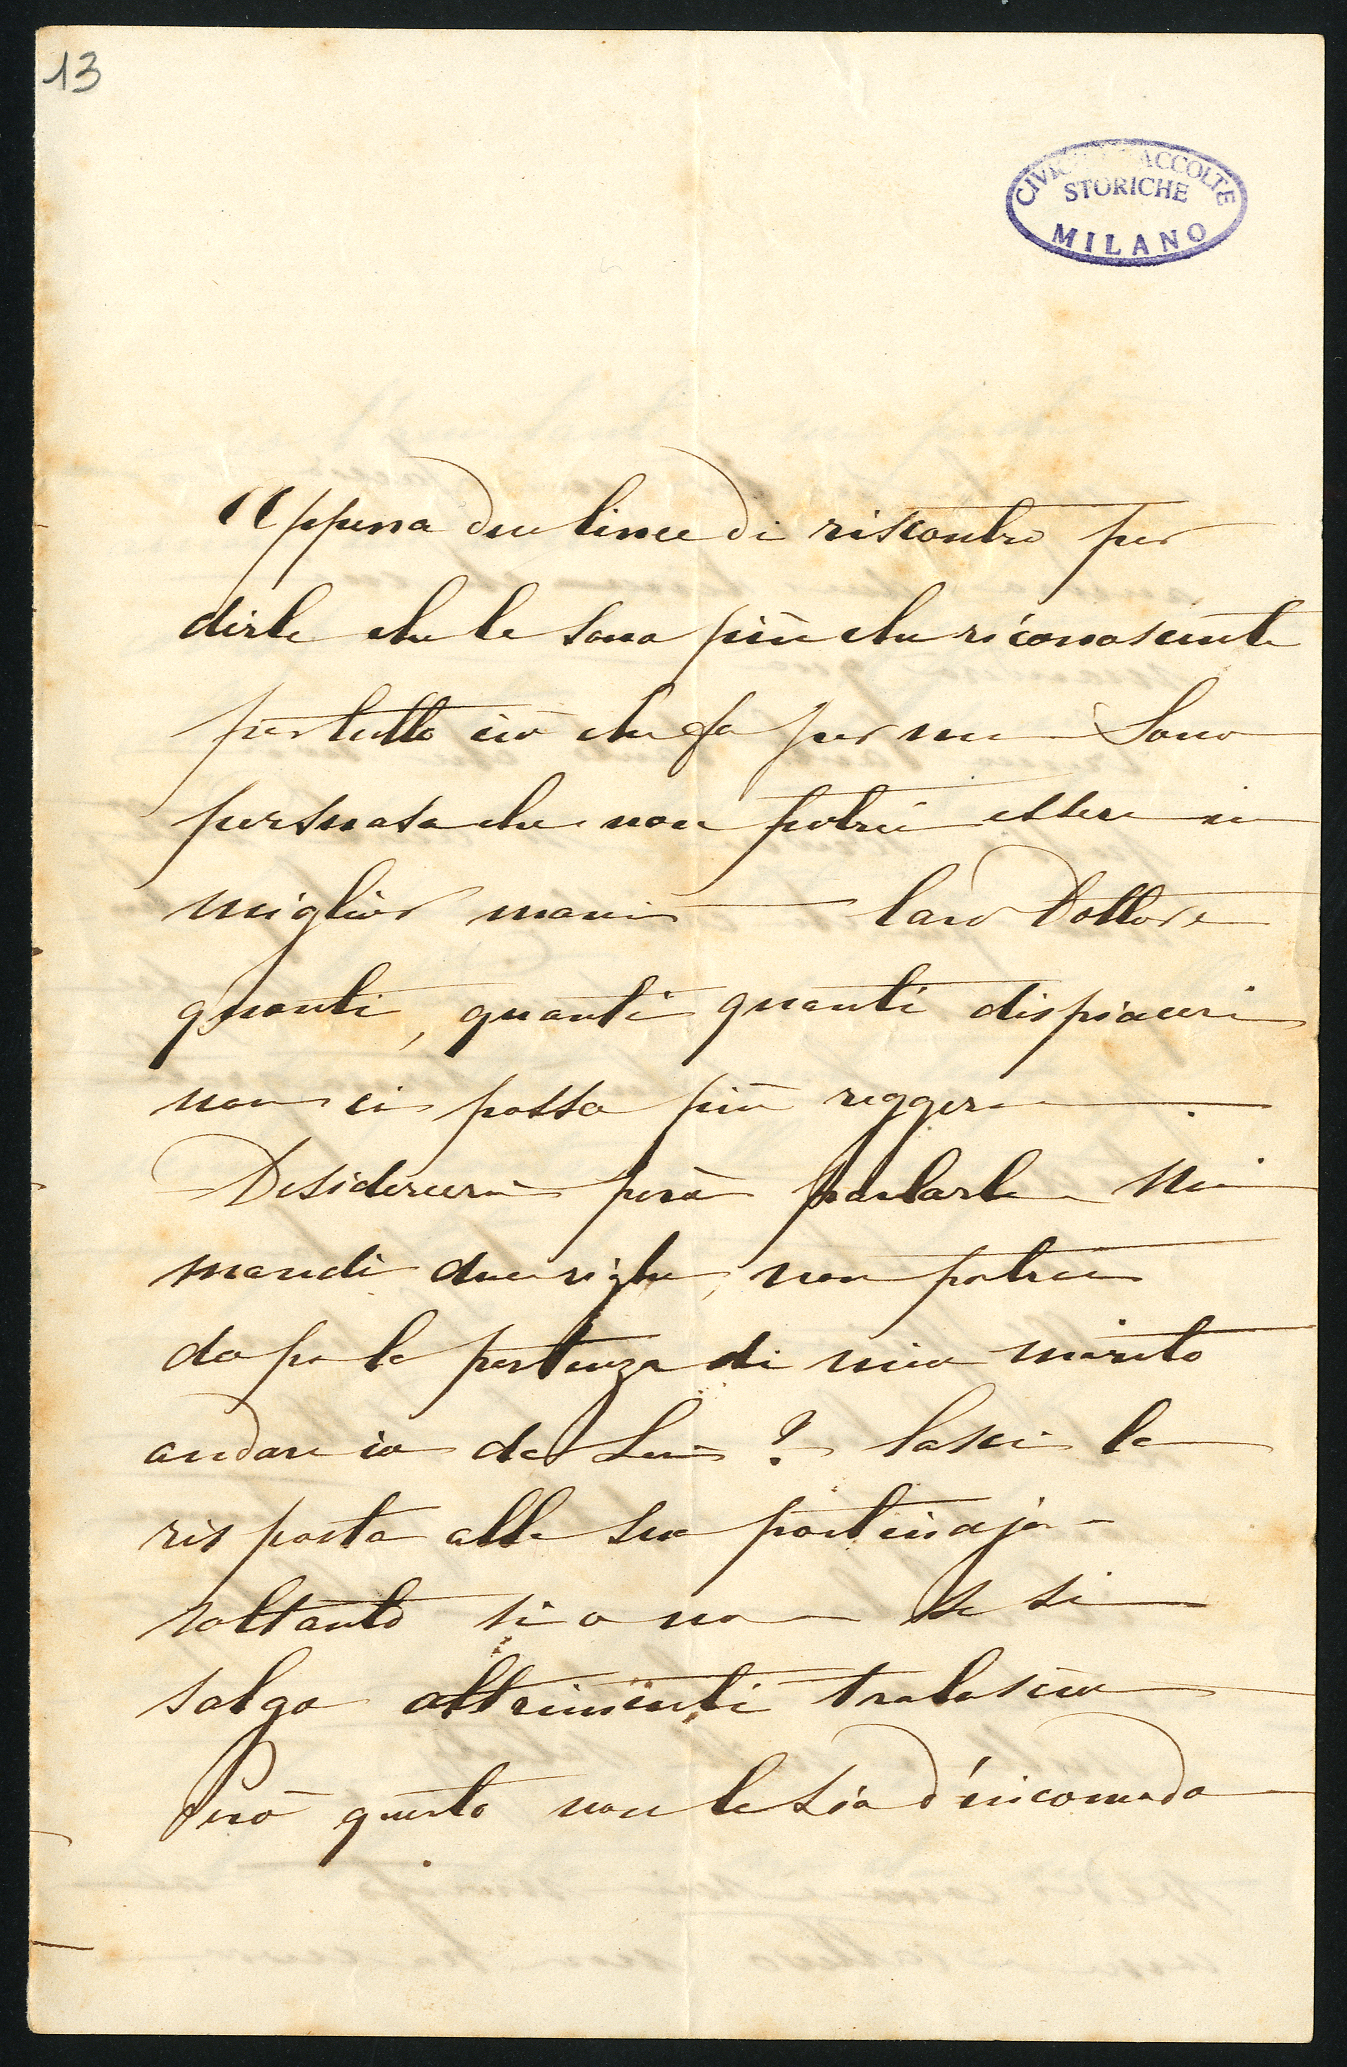 13
CIVICHE RACCOLTE
STORICHE
MILANO
Appena due linee di riscontro per
dirle che le sono più che riconoscente
per tutto ciò che fa per me Sono
persuasa che non potrei essere in
miglior mani — Caro Dottore
quanti, quanti quanti dispiaceri
non ci posso più reggere — .
Desidererei però parlarle Mi
mandi due righe, non potrei
dopo la partenza di mio marito
andare io da Lei ? Lasci la
risposta alla sua portinaja -
soltanto si o no — se si
salgo altrimenti tralascio
Però questo non le sia d'incomodo